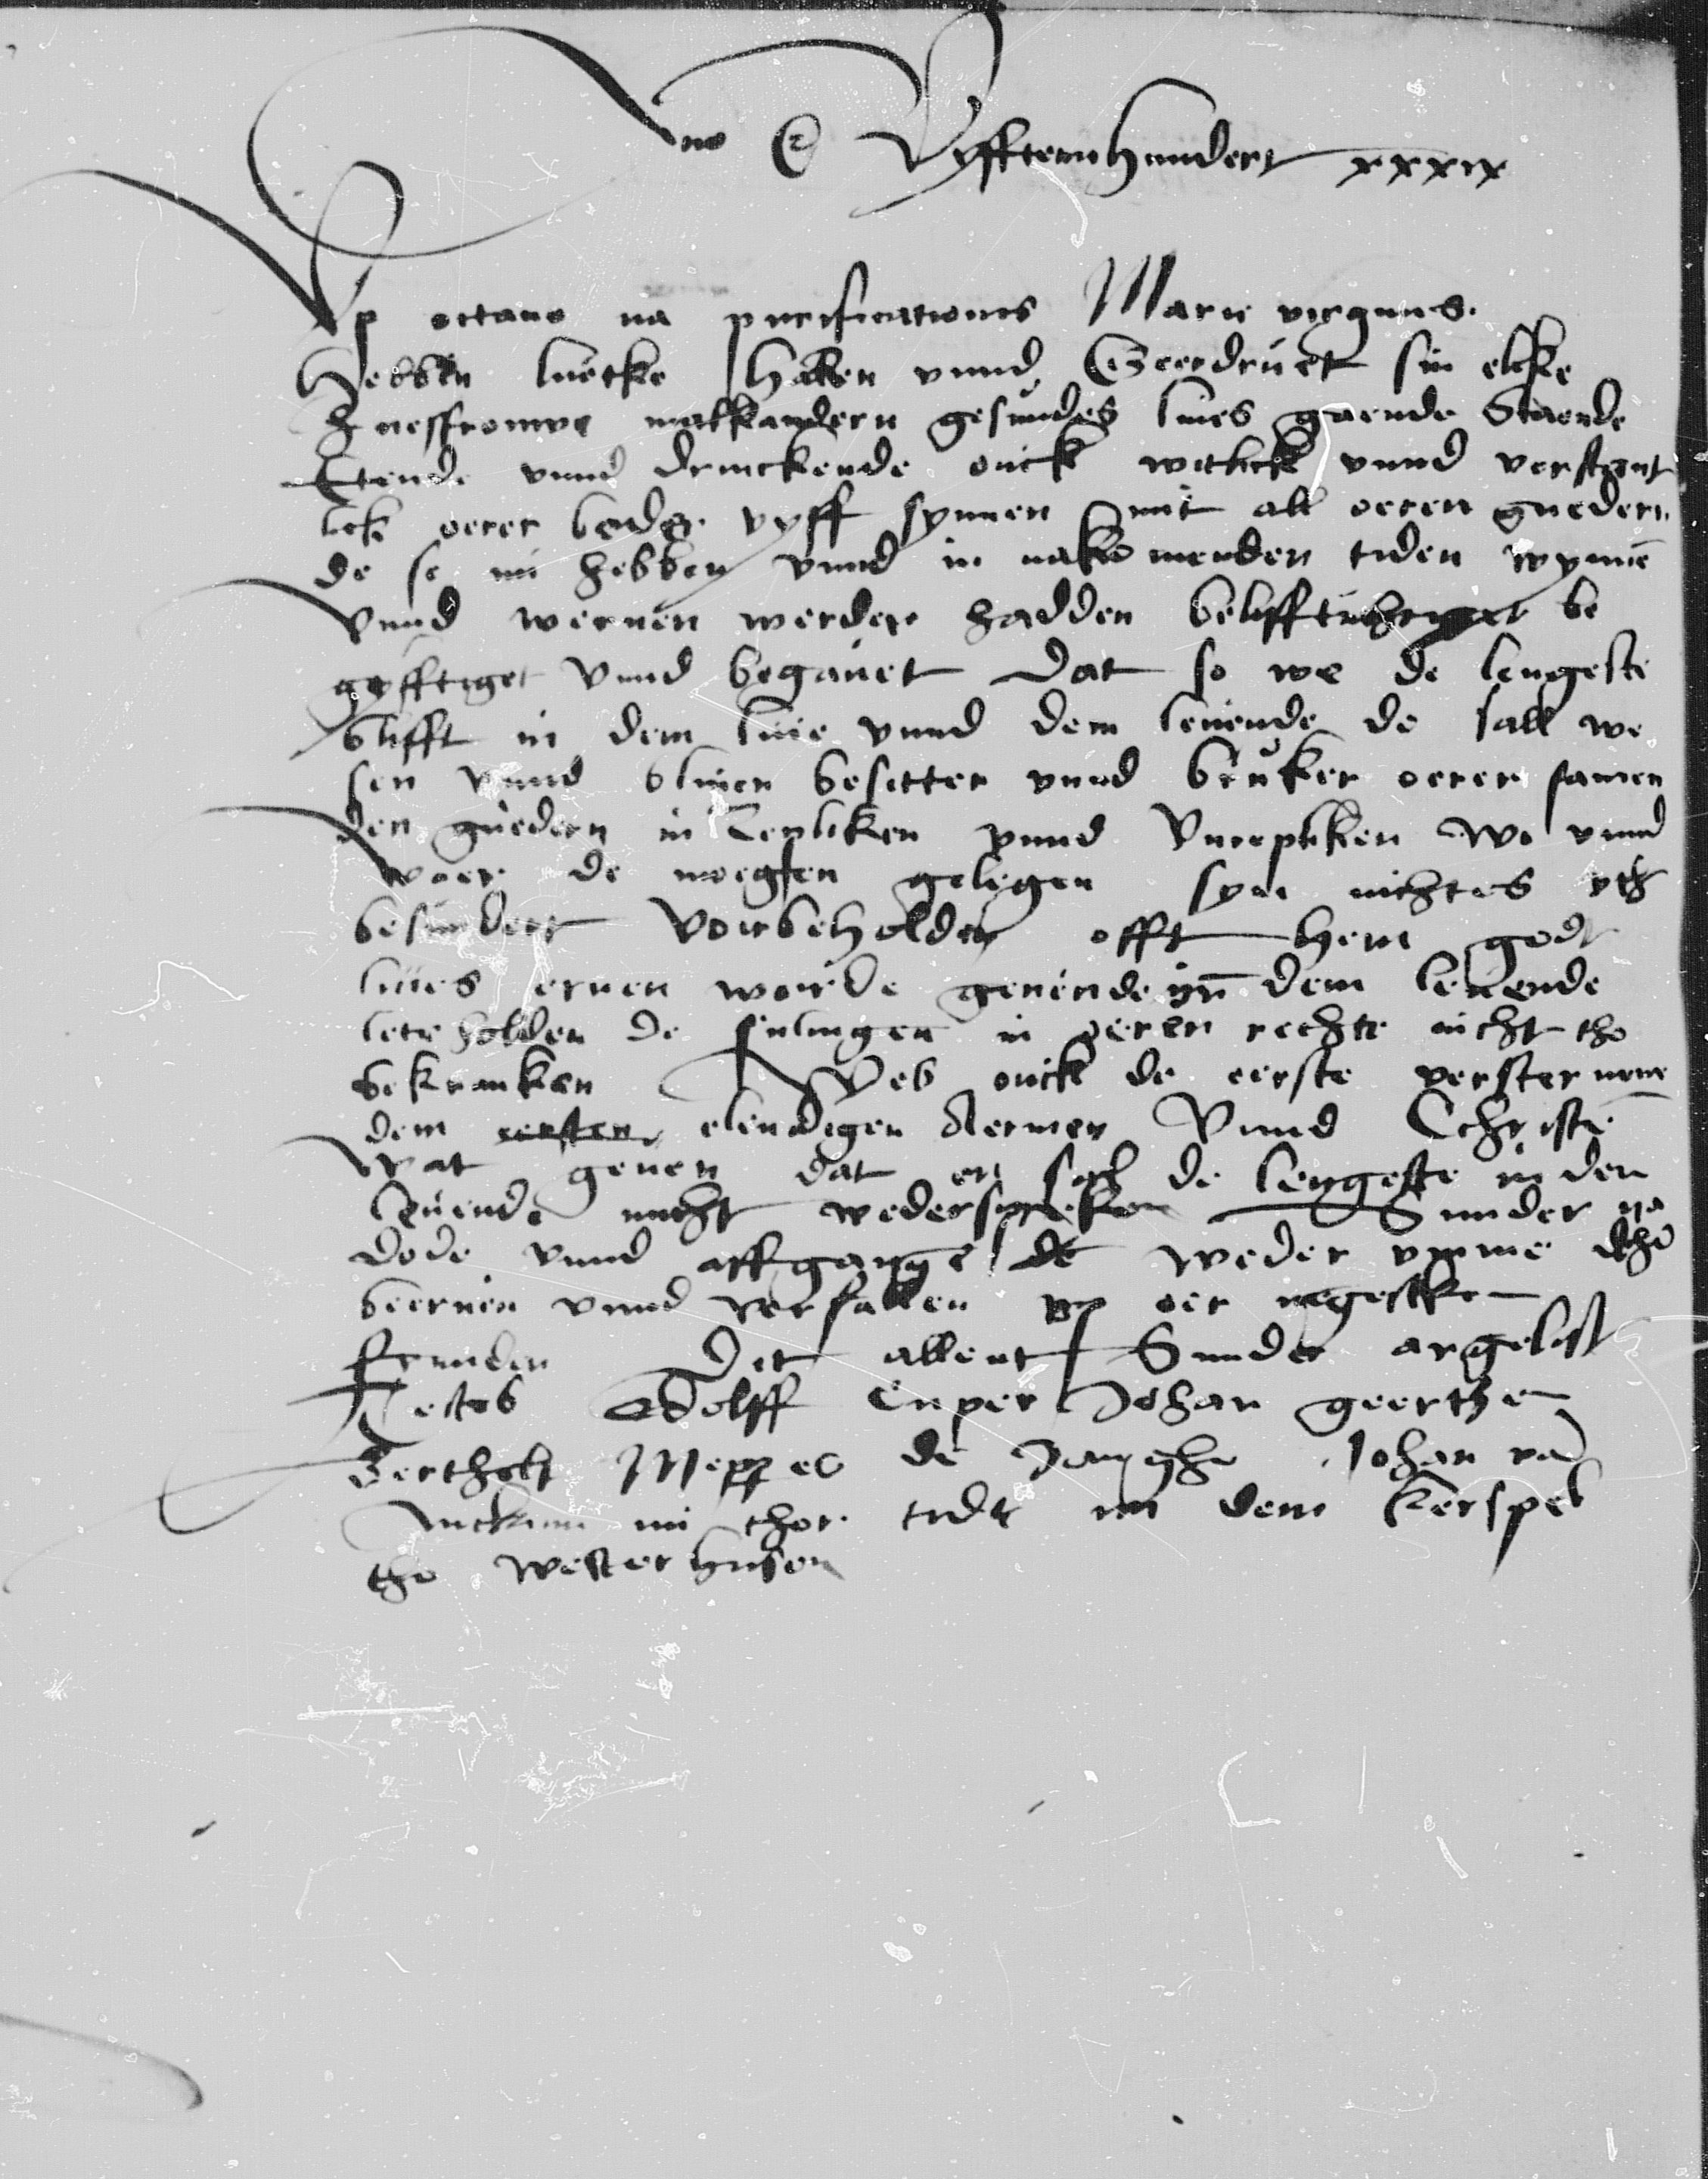 Anno Vyffteinhundert xxxix
Vp octauo na purificationis Marie virginis
Hebben luetke haken vnnd Geerdruet sin elike
huesfrouwe malkandern gesundes liues gaende Staende
Etende vnnd drinckende ouck witlick vnnd verstant
lick oerer beyder vyff synnen mit all oeren guedern
de se nu hebben vnnd in nakomenden tiden wynnē
Vnnd weruen werden hadden belifftuchtiget be
gyfftiget Vnnd begauet Dat so we de lengeste
blifft in dem liue vnnd dem leuende de sall we
sen vnnd bliuen besitter vnnd bruker oerer samen
den guedern in Reepliken vnnd Vnreepliken Wo vnnd
waer de moegen gelegen syn nichtes vth
besundert Vorbeholden offt hem godt
liues eruen worde geuende in dem leuende
lete holden de suluigen in oeren rechte nicht tho
bekrancken Weß ouck de eerste versteruene
dem eersten elendigen Aermen Vnnd Cchristē
Wat geuen dat en sal de lengeste in den
leuende nicht wederspreken Sunder na
dode vnnd affgange de weder vmme tho
beeruen vnnd verfallen vp oer negesten
frunden Dit allent Sunder argelist
Testes Adolff Cuper Johan geertzen
Bertholt Meppes de Jonghe Johan vā
nu thor tidt in dem kerspel
tho westerhusen